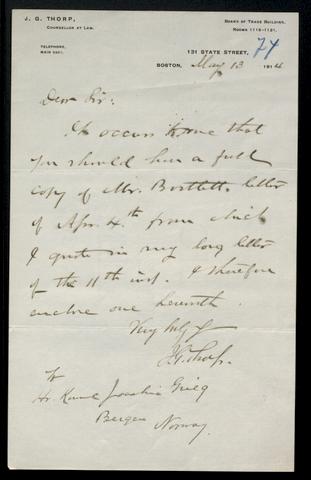 J. G. THORP,
COUNSELLOR AT LAW.
TELEPHONE,
MAIN
BOARD OF TRADE BUILDING,
ROOMS 1116-1121,
131 STATE STREET,
74
BOSTON, May 13 1914
Dear Sir:
It occurs to me that
you should have a full
copy of Mr. Bartlett's letter
of Apr. 4th from which
I quote in my long letter
of the 11th inst. I therefore
enclose one herewith.
Very truly y
J.G. Thorp.
To
Hr. Joachim Grieg
Bergen
Norway.